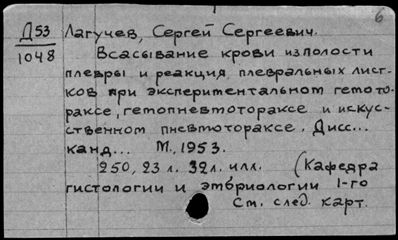 6
Д53 Лагучев, Сергей Сергеевич.
1048 Всасывание крови из полости
плевры и реакция плевральных лист-
ков при экспериментальном гемото-
раксе, гемопневмотораксе и искус-
ственном пневмотораксе. Дисс...
канд... М., 1953.
250, 23 л. 32л. илл. (Кафедра
гистологии и эмбриологии 1-го
См. след. карт.